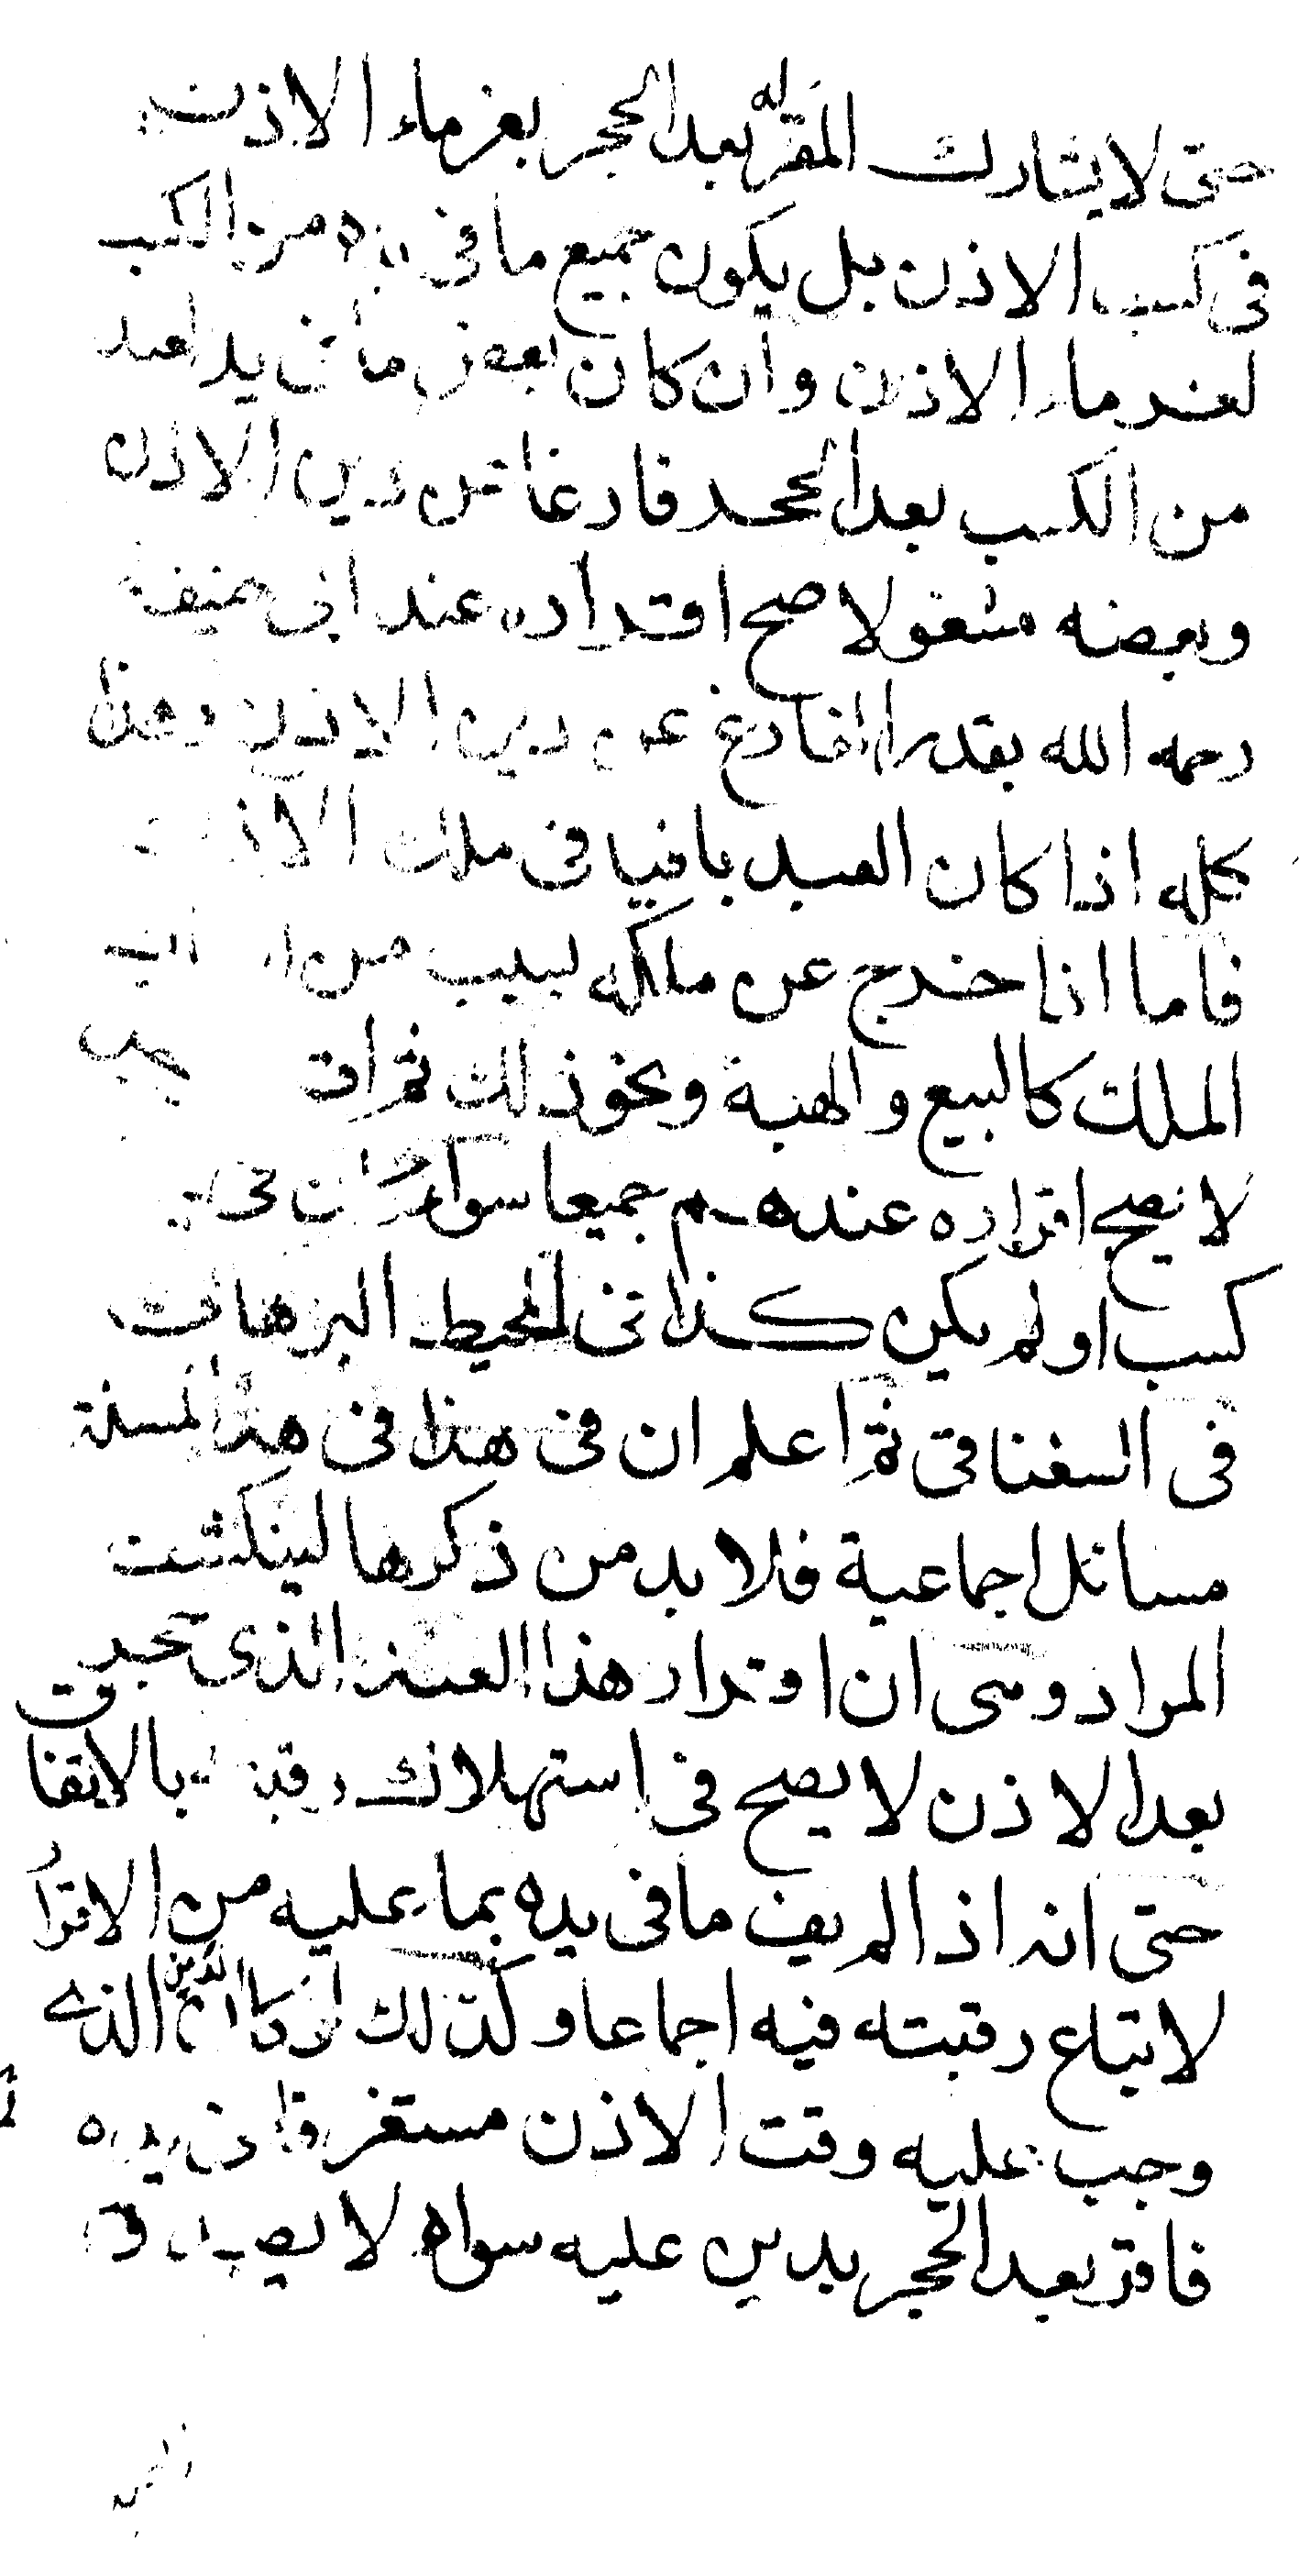 حتى لا يشارك المقر له بعد الحجر بغرماء الاذن
فى كسب الاذن بل يكون جميع ما فى يده من الكسب
لغرماء الاذن وان كان بعض ما فى يد العبد
من الكسب بعد الحجر فارغا عن دين الاذن
وبعضه مشغولا صح اقراره عند ابى حنيفة
رحمه الله بقدر الفارغ عن دين الاذن وهذا
كله اذا كان العبد باقيا فى ملك الاذن
فاما اذا خرج عن ملكه لسبب من
الملك كالبيع والهبة ونحو ذلك ثم اقر
لا يصح اقراره عندهم جميعا سواء كان فى يده
كسب او لم يكن كذا فى المحيط البرهانى
فى السغناقى ثم اعلم ان فى هذا فى هذا المسئلة
مسائل اجماعية فلا بد من ذكرها لينكشف
المراد وهى ان اقرار هذا العبد الذى حجر
بعد الاذن لا يصح فى استهلاك رقبته بالاتفاق
حتى انه اذا لم يف ما فى يده بما عليه من الاقرار
لا يتباع رقبته فيه اجماعا وكذلك لو كان الدين الذى
وجب عليه وقت الاذن مستغرقا فى يده
فاقر بعد الحجر بدين عليه سواه لا يصدق